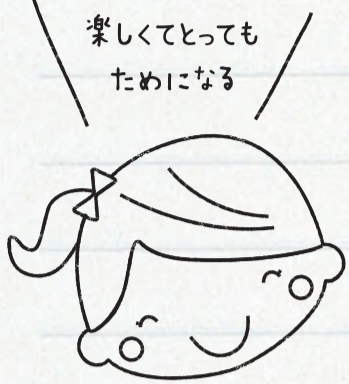 楽しくてとっても
ためになる